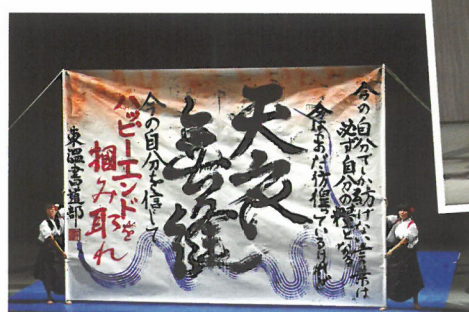 今の自分でしか紡げない言葉は
必ず自分の糧となる
今はまだ彷徨っているけれど
天衣
無縫
今の自分を信じて
ハッピーエンドを
掴み取れ
東温書道部